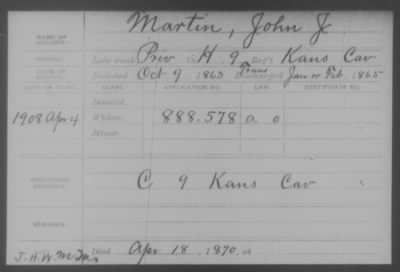 NAME OF SOLDIER: Martin, John J.
SERVICE: Late rank, Priv Co. H, 9 Reg't Kans Cav
TERM OF SERVICE: Enlisted Oct 9, 1863 Trans Discharged Jan or Feb., 1865
DATE OF FILING. CLASS. APPLICATION NO. LAW. CERTIFICATE NO.
Invalid,
1908 Apr 4 Widow, 888.578 a o
Minor,
ADDITIONAL SERVICES: C 9 Kans Cav
REMARKS:
Died Apr 18, 1870, at